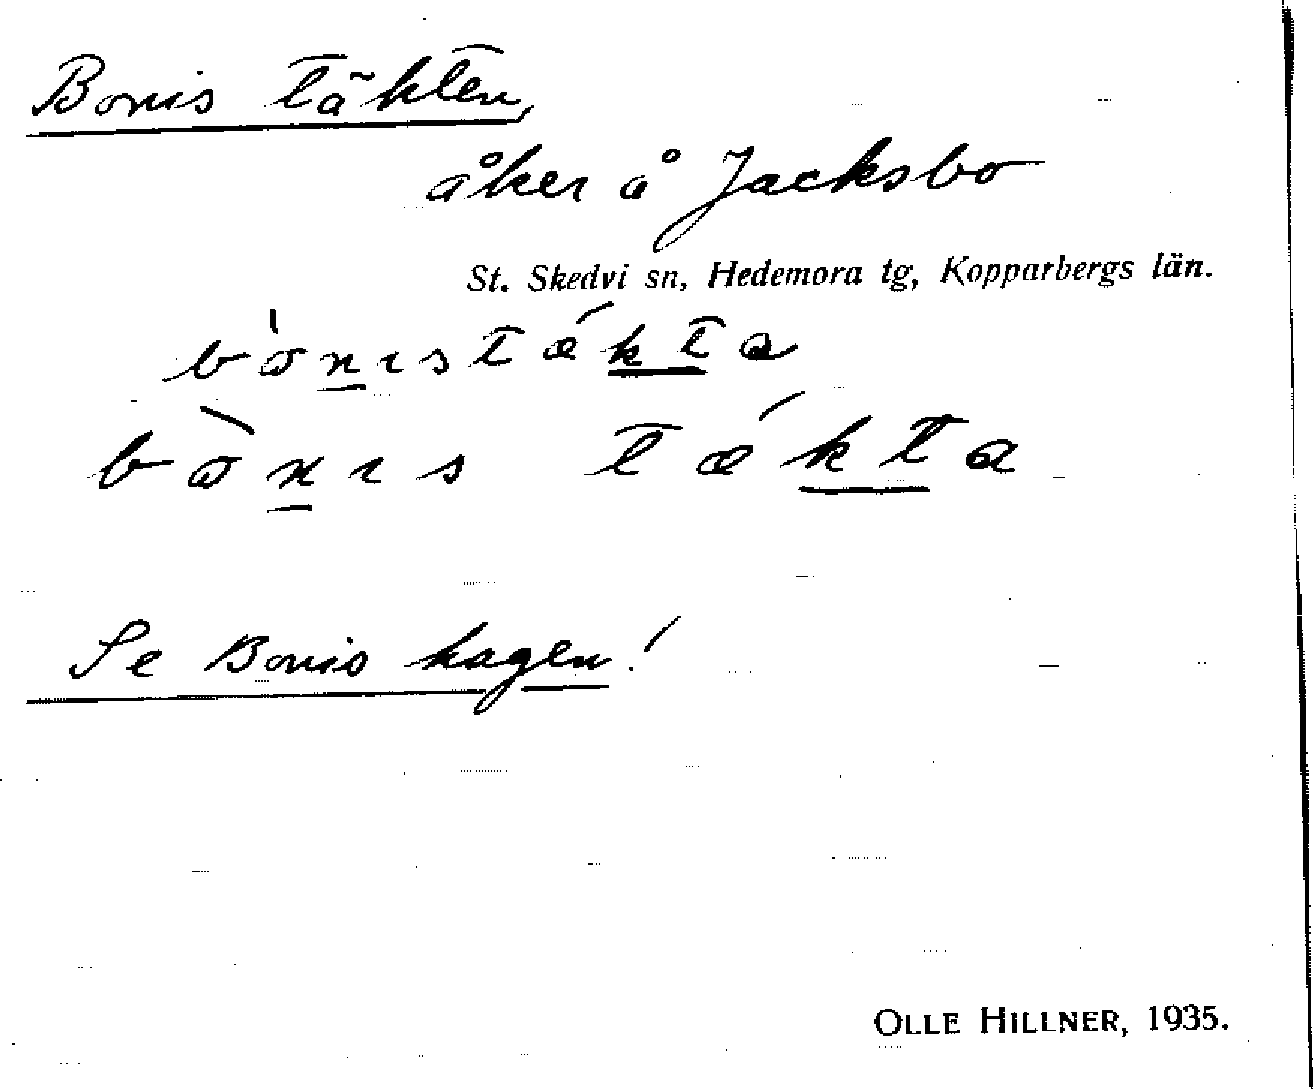 Bonis täkten,
åker å Jacksbo
St. Skedvi sn, Hedemora tg, Kopparbergs län.
bònıstǽkta
bònıs tǽkta
Se Bonis hagen!
OLLE HILLNER, 1935.